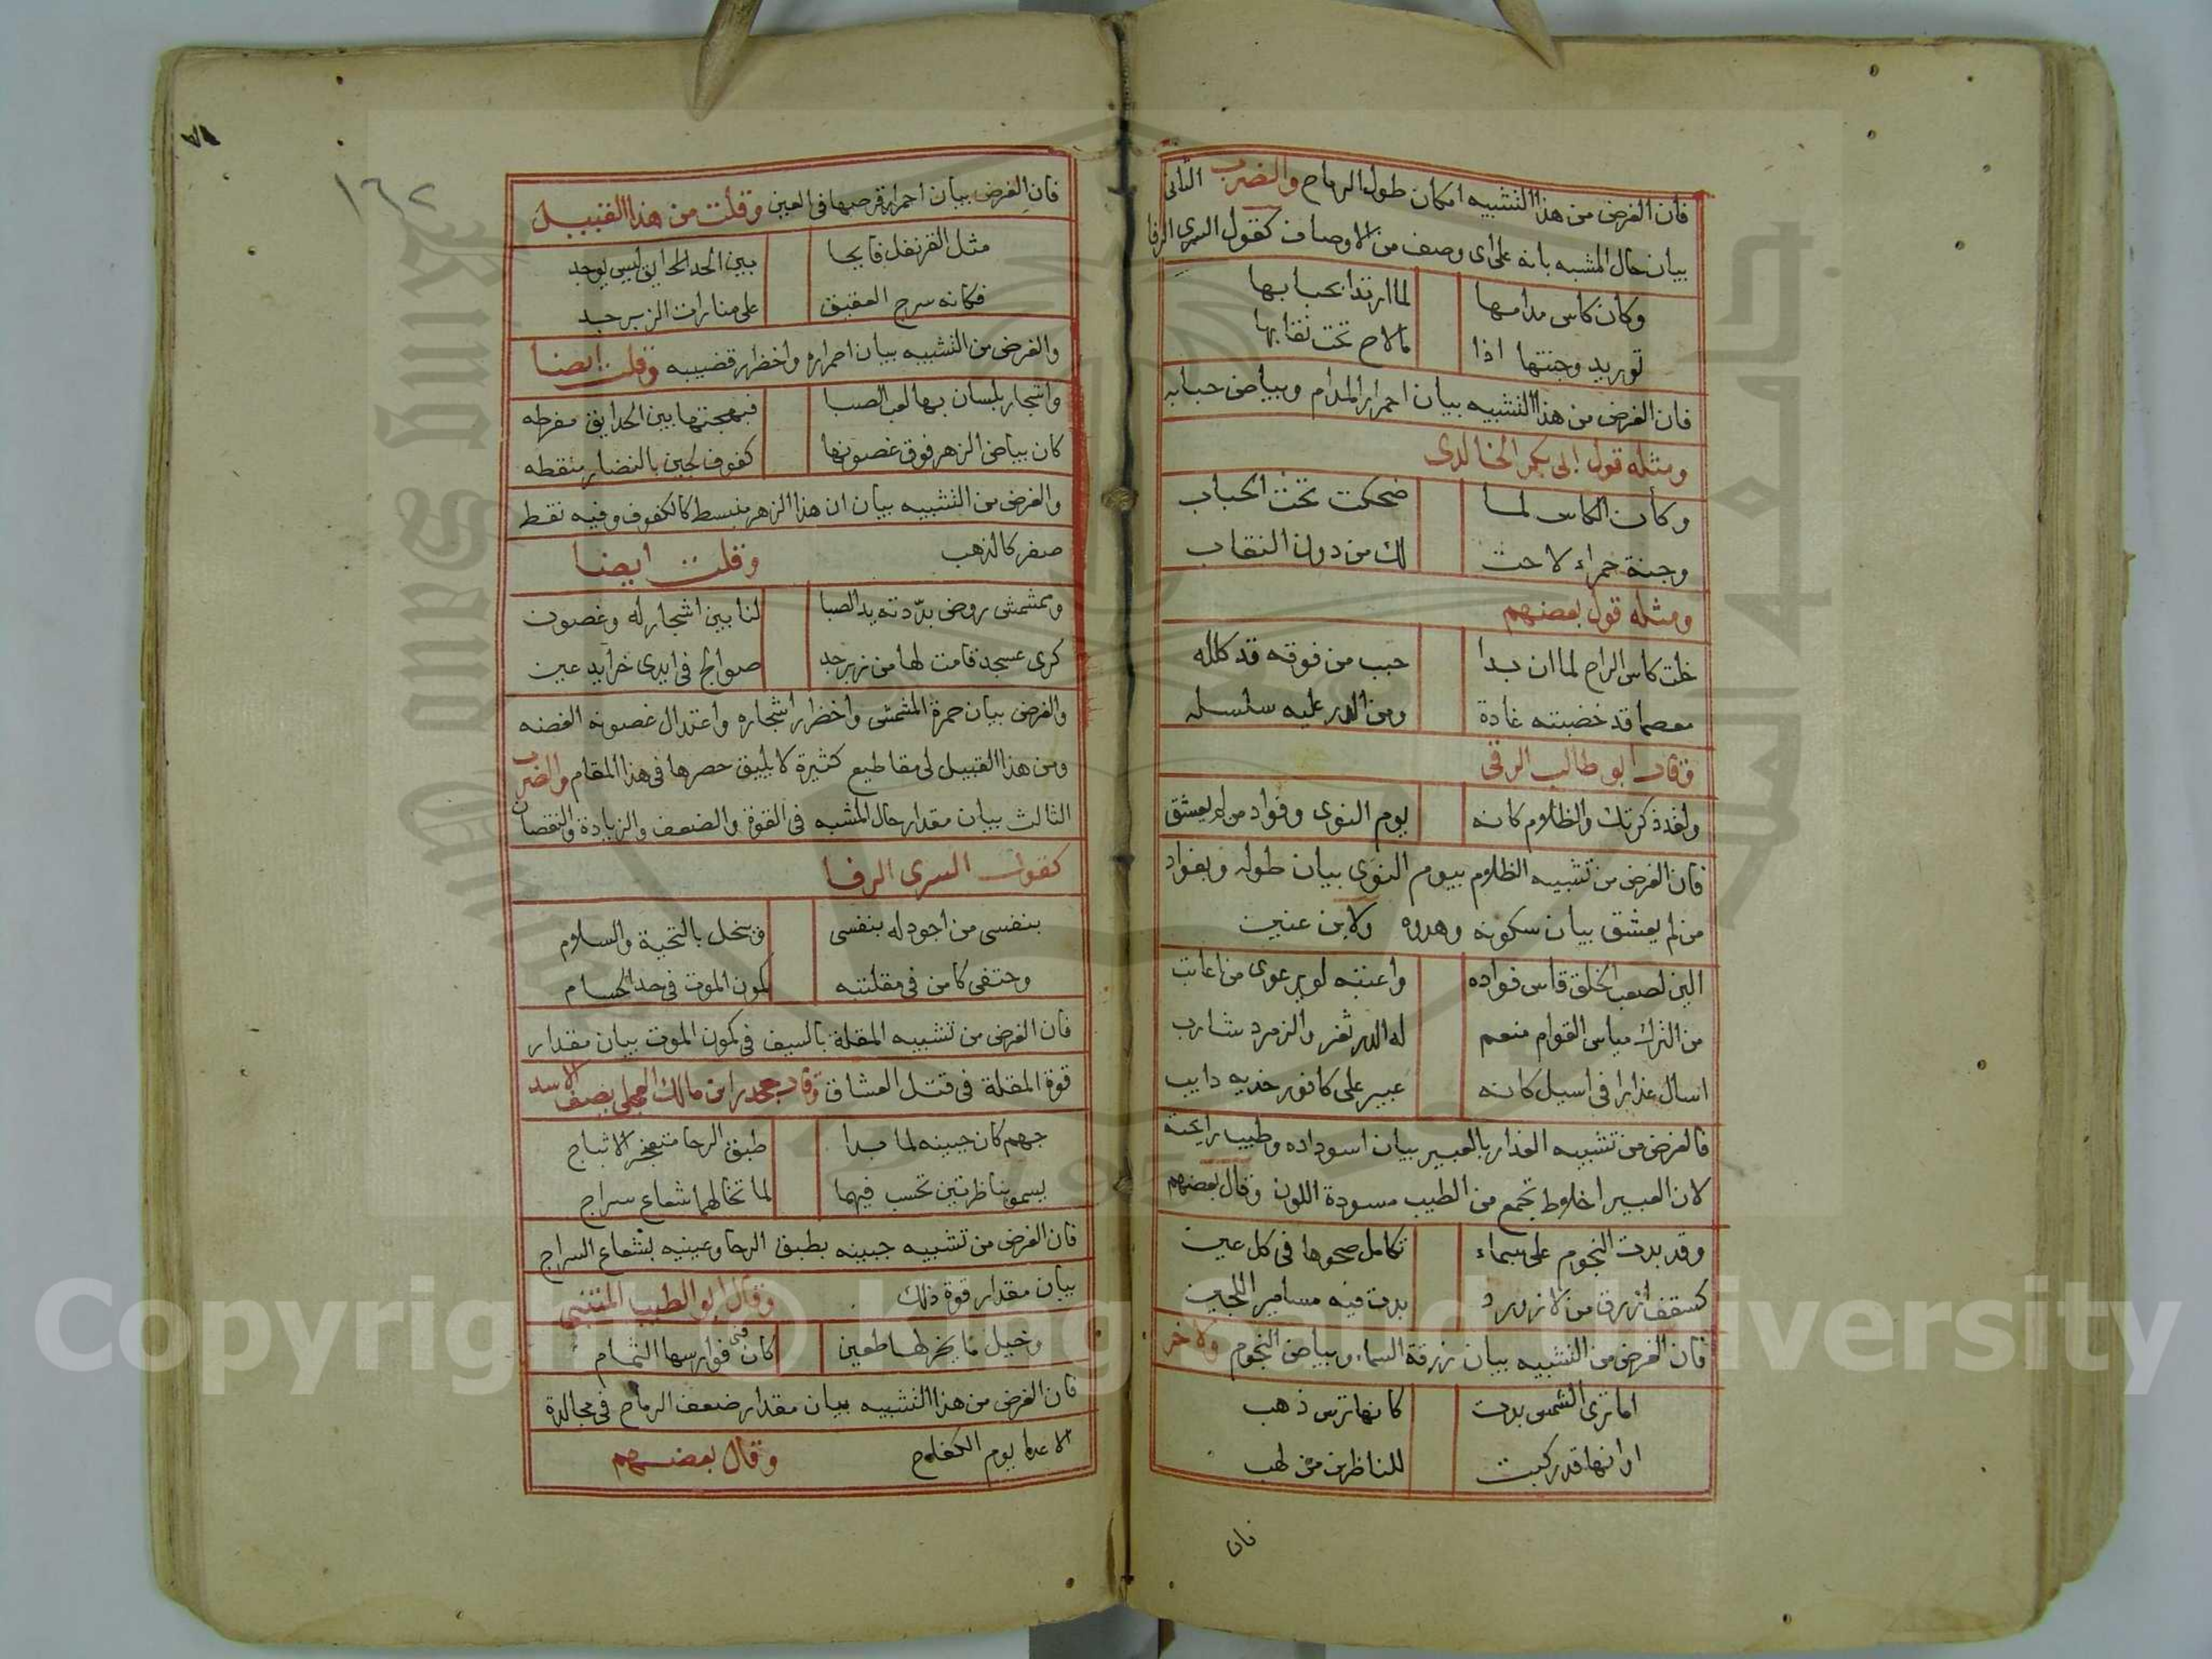 فان الغرض من هذا التشبيه امكان طول الرماح والضرب الثانى
بيان حال المشبه بانه على اى وصف من الاوصاف كقول السرى الرفا
وكان كاس مدامها لما ارتدا بحبابها
توريد وجنتها اذا مالاح تحت نقابها
فان الغرض من هذا التشبيه بيان احمرار المدام وبياض حبابه
ومثله قول ابى بكر الخالدى
وكأن الكاس لما ضحكت تحت الحباب
وجنة حمراء لاحت لك من دون النقاب
ومثله قول بعضهم
خلت كاس الراح لما ان بدا حبب من فوقه قد كلله
معصما قد خضبته غادة ومن الدر عليه سلسله
وقال ابو طالب الرقى
ولقد ذكرتك والظلام كانه يوم النوى وفواد من لم يعشق
فان الغرض من تشبيه الظلام بيوم النوى بيان طوله وبفواد
من لم يعشق بيان سكونه وهدوه ولابن عنين
الين لصعب الخلق قاس فواده واعتبه لو يرعوى من اعاتب
من الترك مياس القوام منعم له الدر ثغر والزمرد شارب
اسال عذارا فى اسيل كانه عبير على كافور خديه دايب
فالغرض من تشبيه العذار بالعبير بيان اسوداده وطيب رايحته
لان العبير اخلاط تجمع من الطيب مسودة اللون وقال بعضهم
وقد بدت النجوم على سماء تكامل صحوها فى كل عين
كسقف ازرق من لازورد بدت فيه مسامير اللجين
فان الغرض من التشبيه بيان زرقة السماء وبياض النجوم ولاخر
اما ترى الشمس بدت كانها ترس ذهب
او انها قد ركبت للناظرين من لهب
فان
١٦٢
فان الغرض بيان احمرار قرصها فى العين وقلت من هذا القبيل
مثل القرنفل قايما بين الحدايق ليس يوجد
فكانه سرج العقيق على منارات الزبرجد
والغرض من التشبيه بيان احمراره واخضرار قضيبه وقلت ايضا
واشجار بلسان بها لعب الصبا فبهجتها بين الحدايق مفرطه
كان بياض الزهر فوق غصونها كفوف لجين بالنضار منقطه
والغرض من التشبيه بيان ان هذا الزهر منبسط كالكفوف وفيه نقط
صفر كالذهب وقلت ايضا
ومشمش روض بدّدته يد الصبا لنا بين اشجار له وغصون
كرى عسجد قامت لها من زبرجد صوالج فى ايدى خرايد عين
والغرض بيان حمرة المشمش واخضرار اشجاره واعتدال غصونه الغضه
ومن هذا القبيل لى مقاطيع كثيرة لا يليق حصرها فى هذا المقام والضرب
الثالث بيان مقدار حال المشبه فى القوة والضعف والزيادة والنقصان
كقول السرى الرفا
بنفسى من اجود له بنفسى ويبخل بالتحية والسلام
وحتفى كامن فى مقلتيه كمون الموت فى حد الحسام
فان الغرض من تشبيه المقلة بالسيف فى كمون الموت بيان مقدار
قوة المقلة فى قتل العشاق وقال جحدر ابن مالك العجلى يصف الاسد
جهم كان جبينه لما بدا طبق الرحا متفجر الاثباج
يسمو بناظرتين تحسب فيهما لما تخالهما شعاع سراج
فان الغرض من تشبيه جبينه بطبق الرحا وعينيه بشعاع السراج
بيان مقدار قوة ذلك وقال ابو الطيب المتنبى
وخيل ما يخر لها طعين كان قنى فوارسها الثمام
فان الغرض من هذا التشبيه بيان مقدار ضعف الرماح فى مجالدة
الاعدا يوم الكفاح وقال بعضهم
Copyright © King Saud University
جامعة الملك
King Saud University
1957